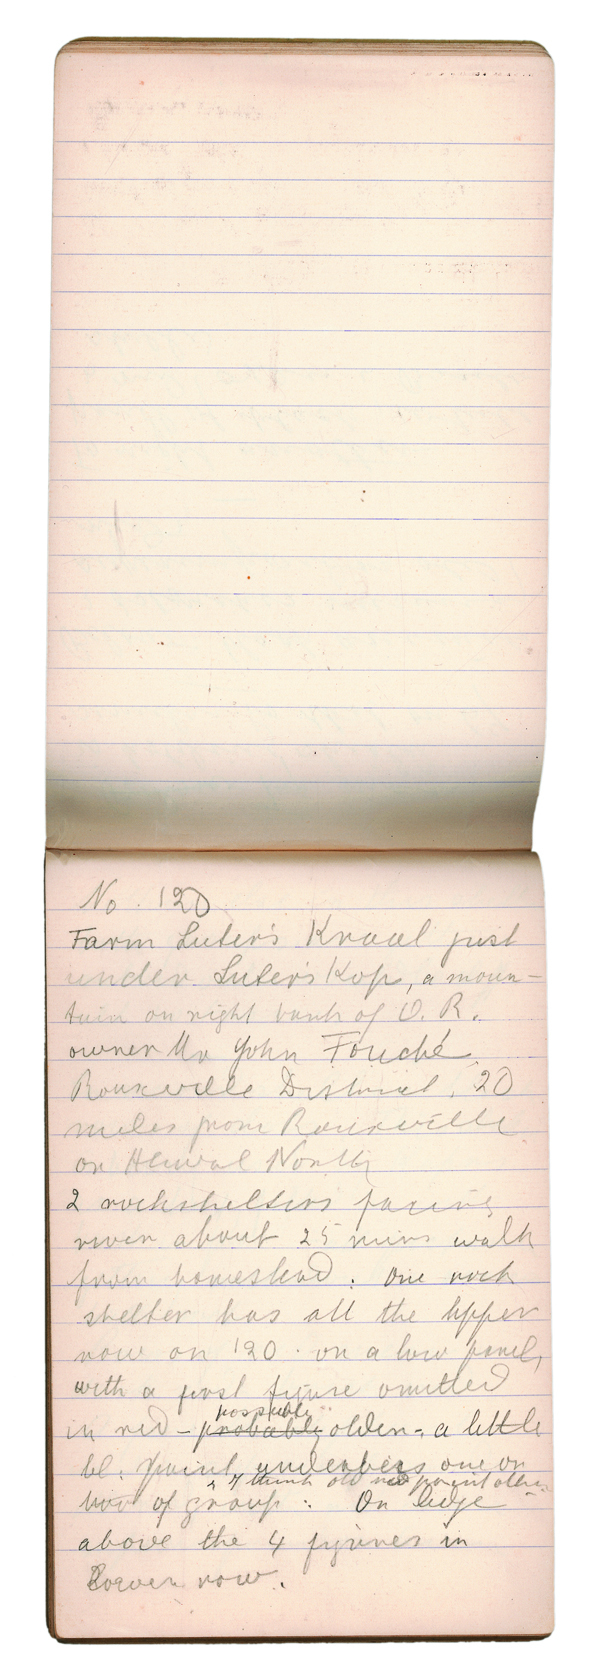 No. 120
Farm Luter's Kraal just
under Luter's Kop, a moun-
tain on right bank of O. R.
owner Mr John Fouché
Rouxville District. 20
miles from Rouxville
on Aliwal North
2 rockshelters facing
river about 25 mins walk
from homestead. One rock
shelter has all the upper
row on 120 on a low panel,
with a first figure omitted
possibly
in red - probably older - a little
bl. paint underlies one or
I think old red paint other
two of group. On ledge
above the 4 figures in
Lower row.